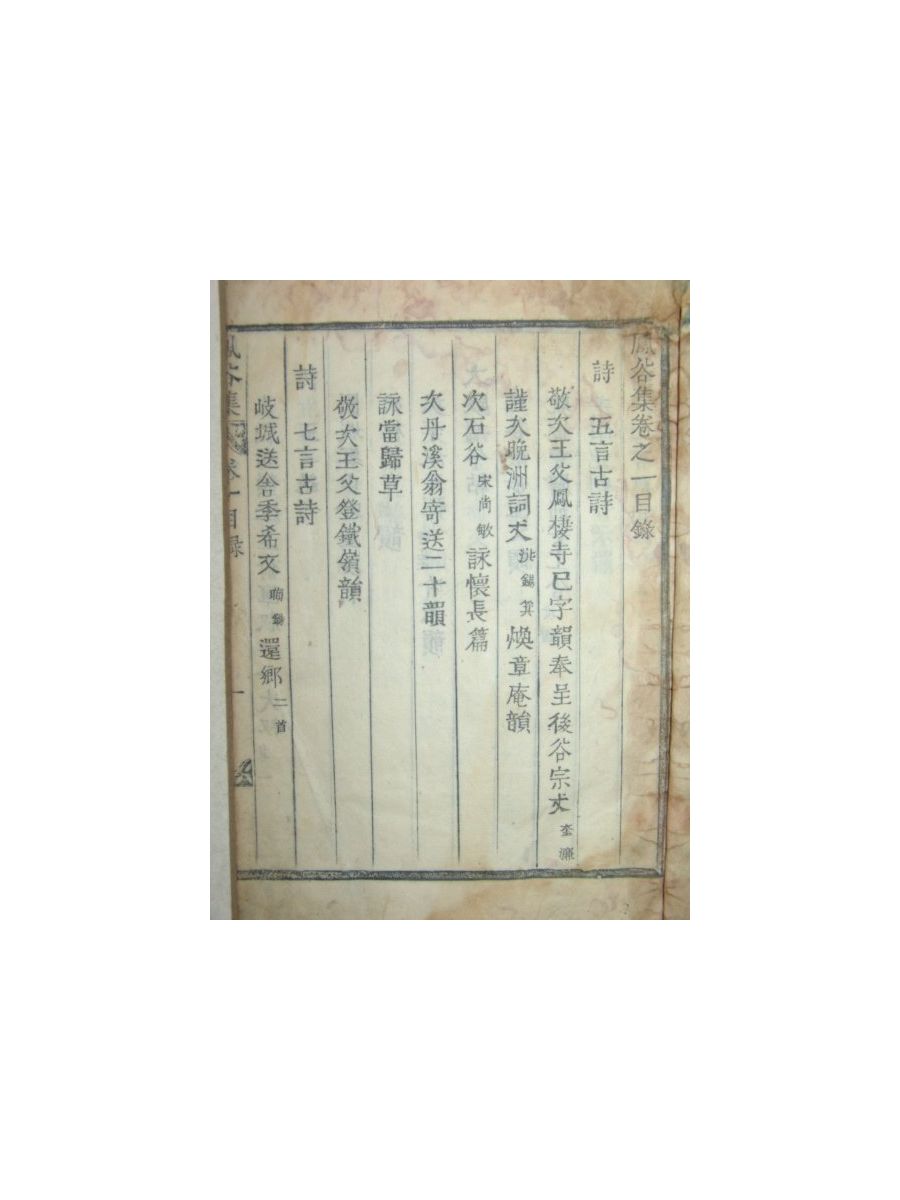 鳳谷集卷之一目錄
詩 五言古詩
敬次王父鳳棲寺已字韻奉呈後谷宗丈奎濂
謹次晩洲詞丈洪錫箕煥章庵韻
次石谷宋尙敏詠懷長篇
次丹溪翁寄送二十韻
詠當歸草
敬次王父登鐵嶺韻
詩 七言古詩
岐城送舍季希文還鄉二首
鳳谷集 卷一目錄 一